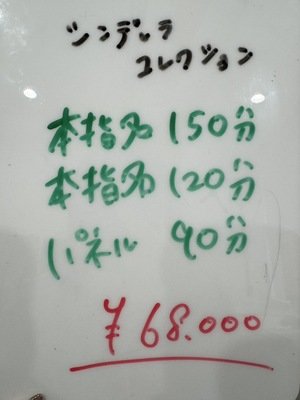 シンデレラ
コレクション
本指名 150分
本指名 120分
パネル 90分
¥68.000